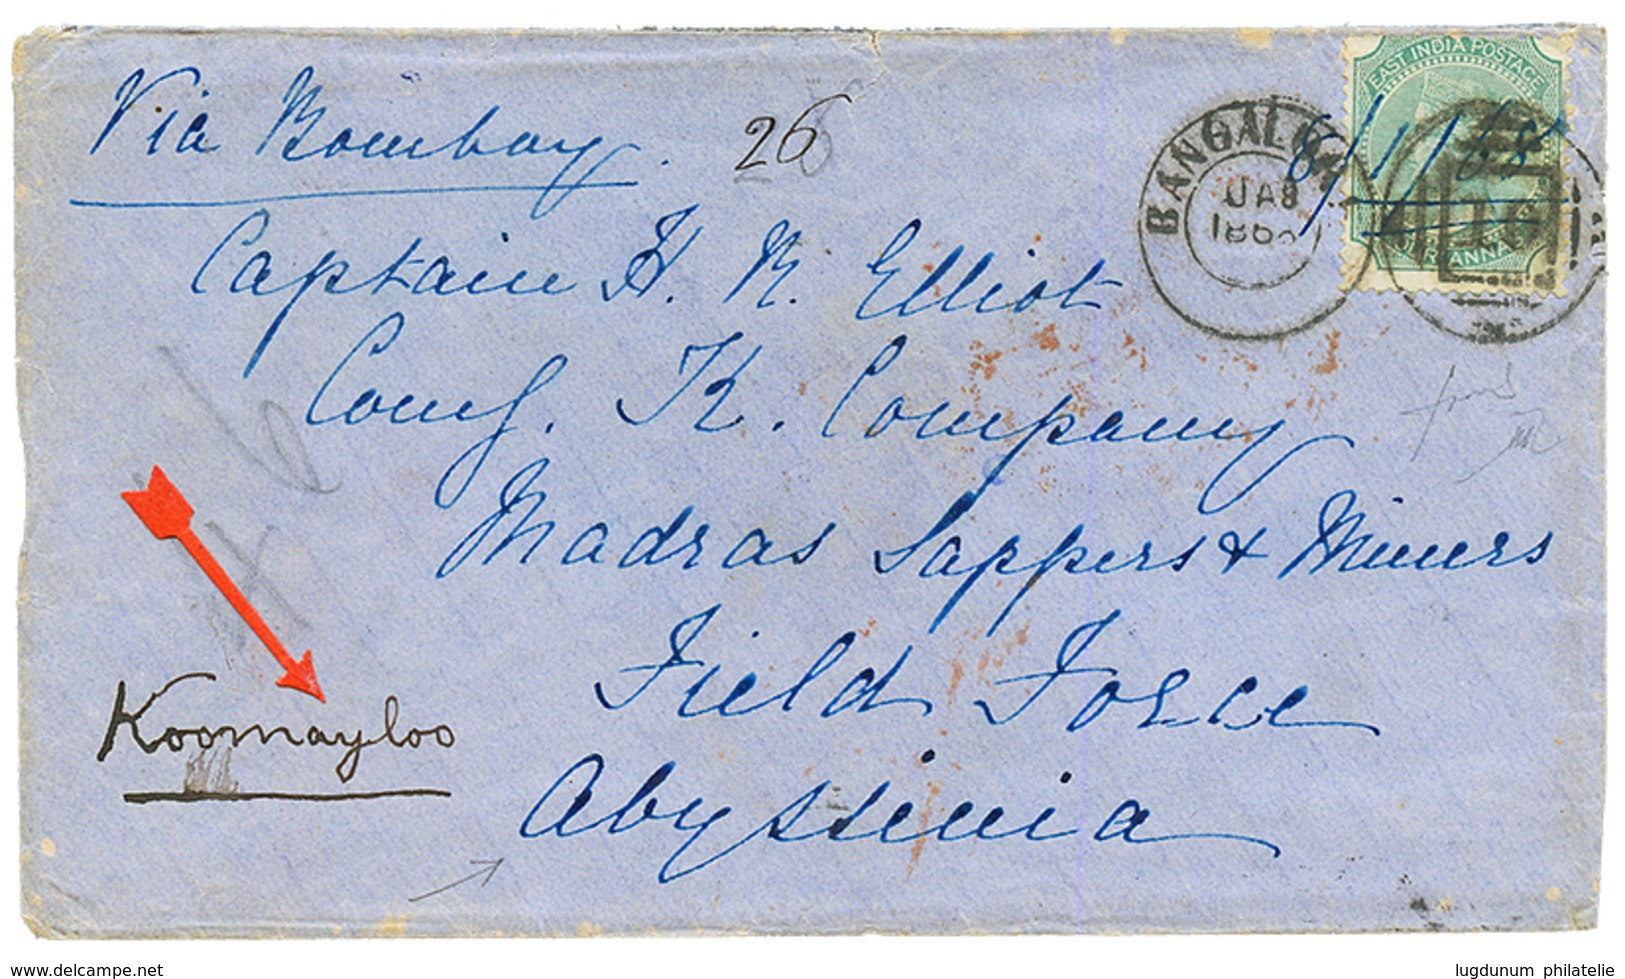 Via Bombay.
26
EAST INDIA POSTAGE
8/1/68
BANGALORE
JA 8
186
Captain H. R. Elliot
Comg. K. Company
Madras Sappers & Miners
Field Force
Abyssinia
Koomayloo
www.delcampe.net
lugdunum philatelie